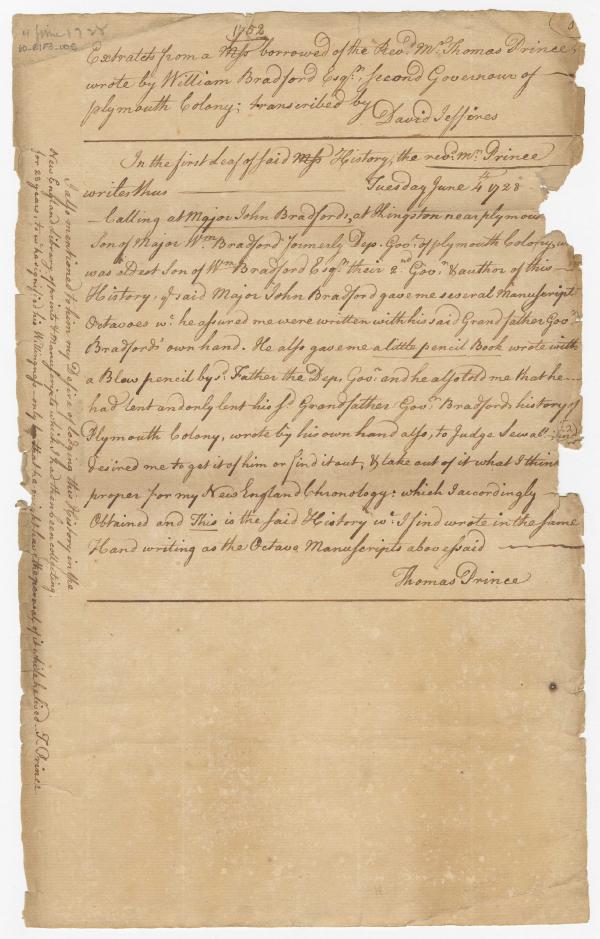 4 June 1728
1752
Extracts from a Mss borrowed of the Revd. Mr. Thomas Prince;
wrote by William Bradford Esqr. second Governour of
Plymouth Colony; transcribed by
David Jeffries
In the first Leaf of said Mss History, the revd. Mr. Prince
writes thus Tuesday June 4th 1728
Calling at Major John Bradfords, at Kingston near plymou
Son of Major Wm. Bradford formerly Dep. Govr. of plymouth Colony, w
was eldest Son of Wm Bradford Esqr. their 2nd Govr. & author of this
History; said Major John Bradford gave me several Manuscript
Octavoes wc. he assured me were written with his said Grandfather Govr.
Bradfords' own hand. He also gave me a little pencil Book wrote with
a Blew pencil by sd. Father the Dep. Govr. and he also told me that he
had lent and only lent his sd. Grandfather Govr. Bradfords history of
Plymouth Colony, wrote by his own hand also, to Judge Sewall: and
desired me to get it of him or find it out, & take out of it what I think
proper for my New England Chronology: which I accordingly
Obtained and This is the said History wc. I find wrote in the same
Hand writing as the Octavo Manuscripts abovesaid
Thomas Prince
I also mentioned to him my Desire of lodging this History in the
New England Library of prints & Manuscripts which I had then been collecting
for 23 years, to wc. he signified his Willingness only that he might have the perusal of it while he lived. T. Prince